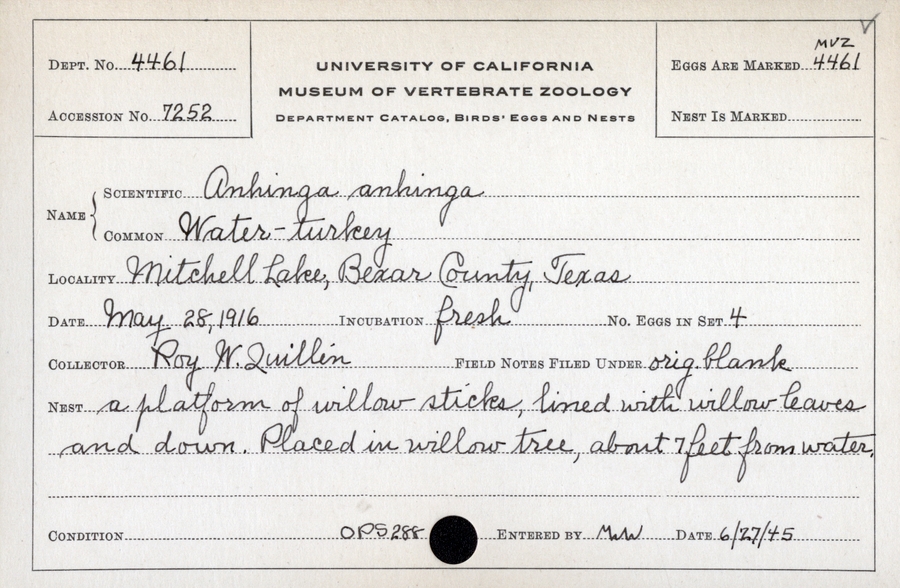 Dept. No. 4461
Accession No. 7252
UNIVERSITY OF CALIFORNIA
MUSEUM OF VERTEBRATE ZOOLOGY
Department Catalog, Birds' Eggs and Nests
MVZ
Eggs Are Marked 4461
Nest Is Marked
Name
Scientific Anhinga anhinga
Common Water-turkey
Locality Mitchell Lake, Bexar County, Texas
Date May 28, 1916 Incubation fresh No. Eggs in Set 4
Collector Roy W. Quillin Field Notes Filed Under orig. blank
Nest a platform of willow sticks, lined with willow leaves
and down. Placed in willow tree, about 7 feet from water.
Condition OPS 288 Entered by Date 6/27/45